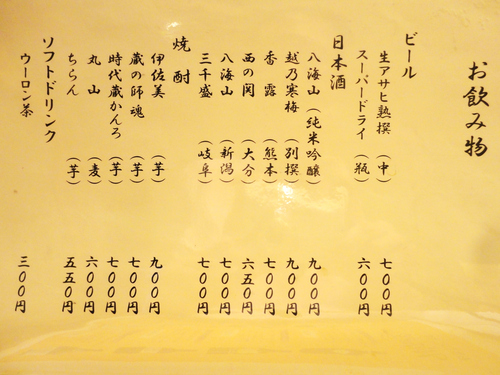 お飲み物
ビール
生アサヒ熟撰（中） 七〇〇円
スーパードライ（瓶） 六〇〇円
日本酒
八海山（純米吟醸） 九〇〇円
越乃寒梅（別撰） 九〇〇円
香露（熊本） 七〇〇円
西の関（大分） 六五〇円
八海山（新潟） 七〇〇円
三千盛（岐阜） 七〇〇円
焼酎
伊佐美（芋） 九〇〇円
蔵の師魂（芋） 七〇〇円
時代蔵かんろ（芋） 七〇〇円
丸山（麦） 六〇〇円
ちらん（芋） 五五〇円
ソフトドリンク
ウーロン茶 三〇〇円